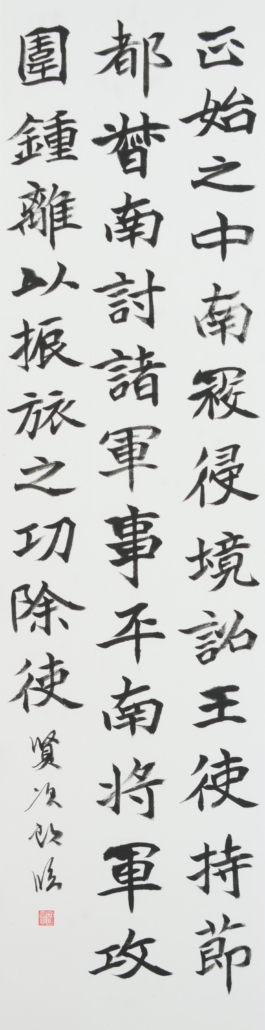 正始之中南冦侵境詔王使持節
都督南討諸軍事平南将軍攻
圍鍾離以振旅之功除使
賢次郎臨